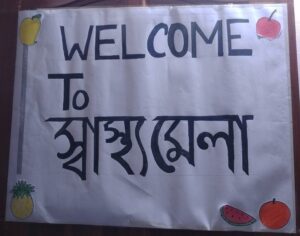 WELCOME
To
স্বাস্থ্য মেলা